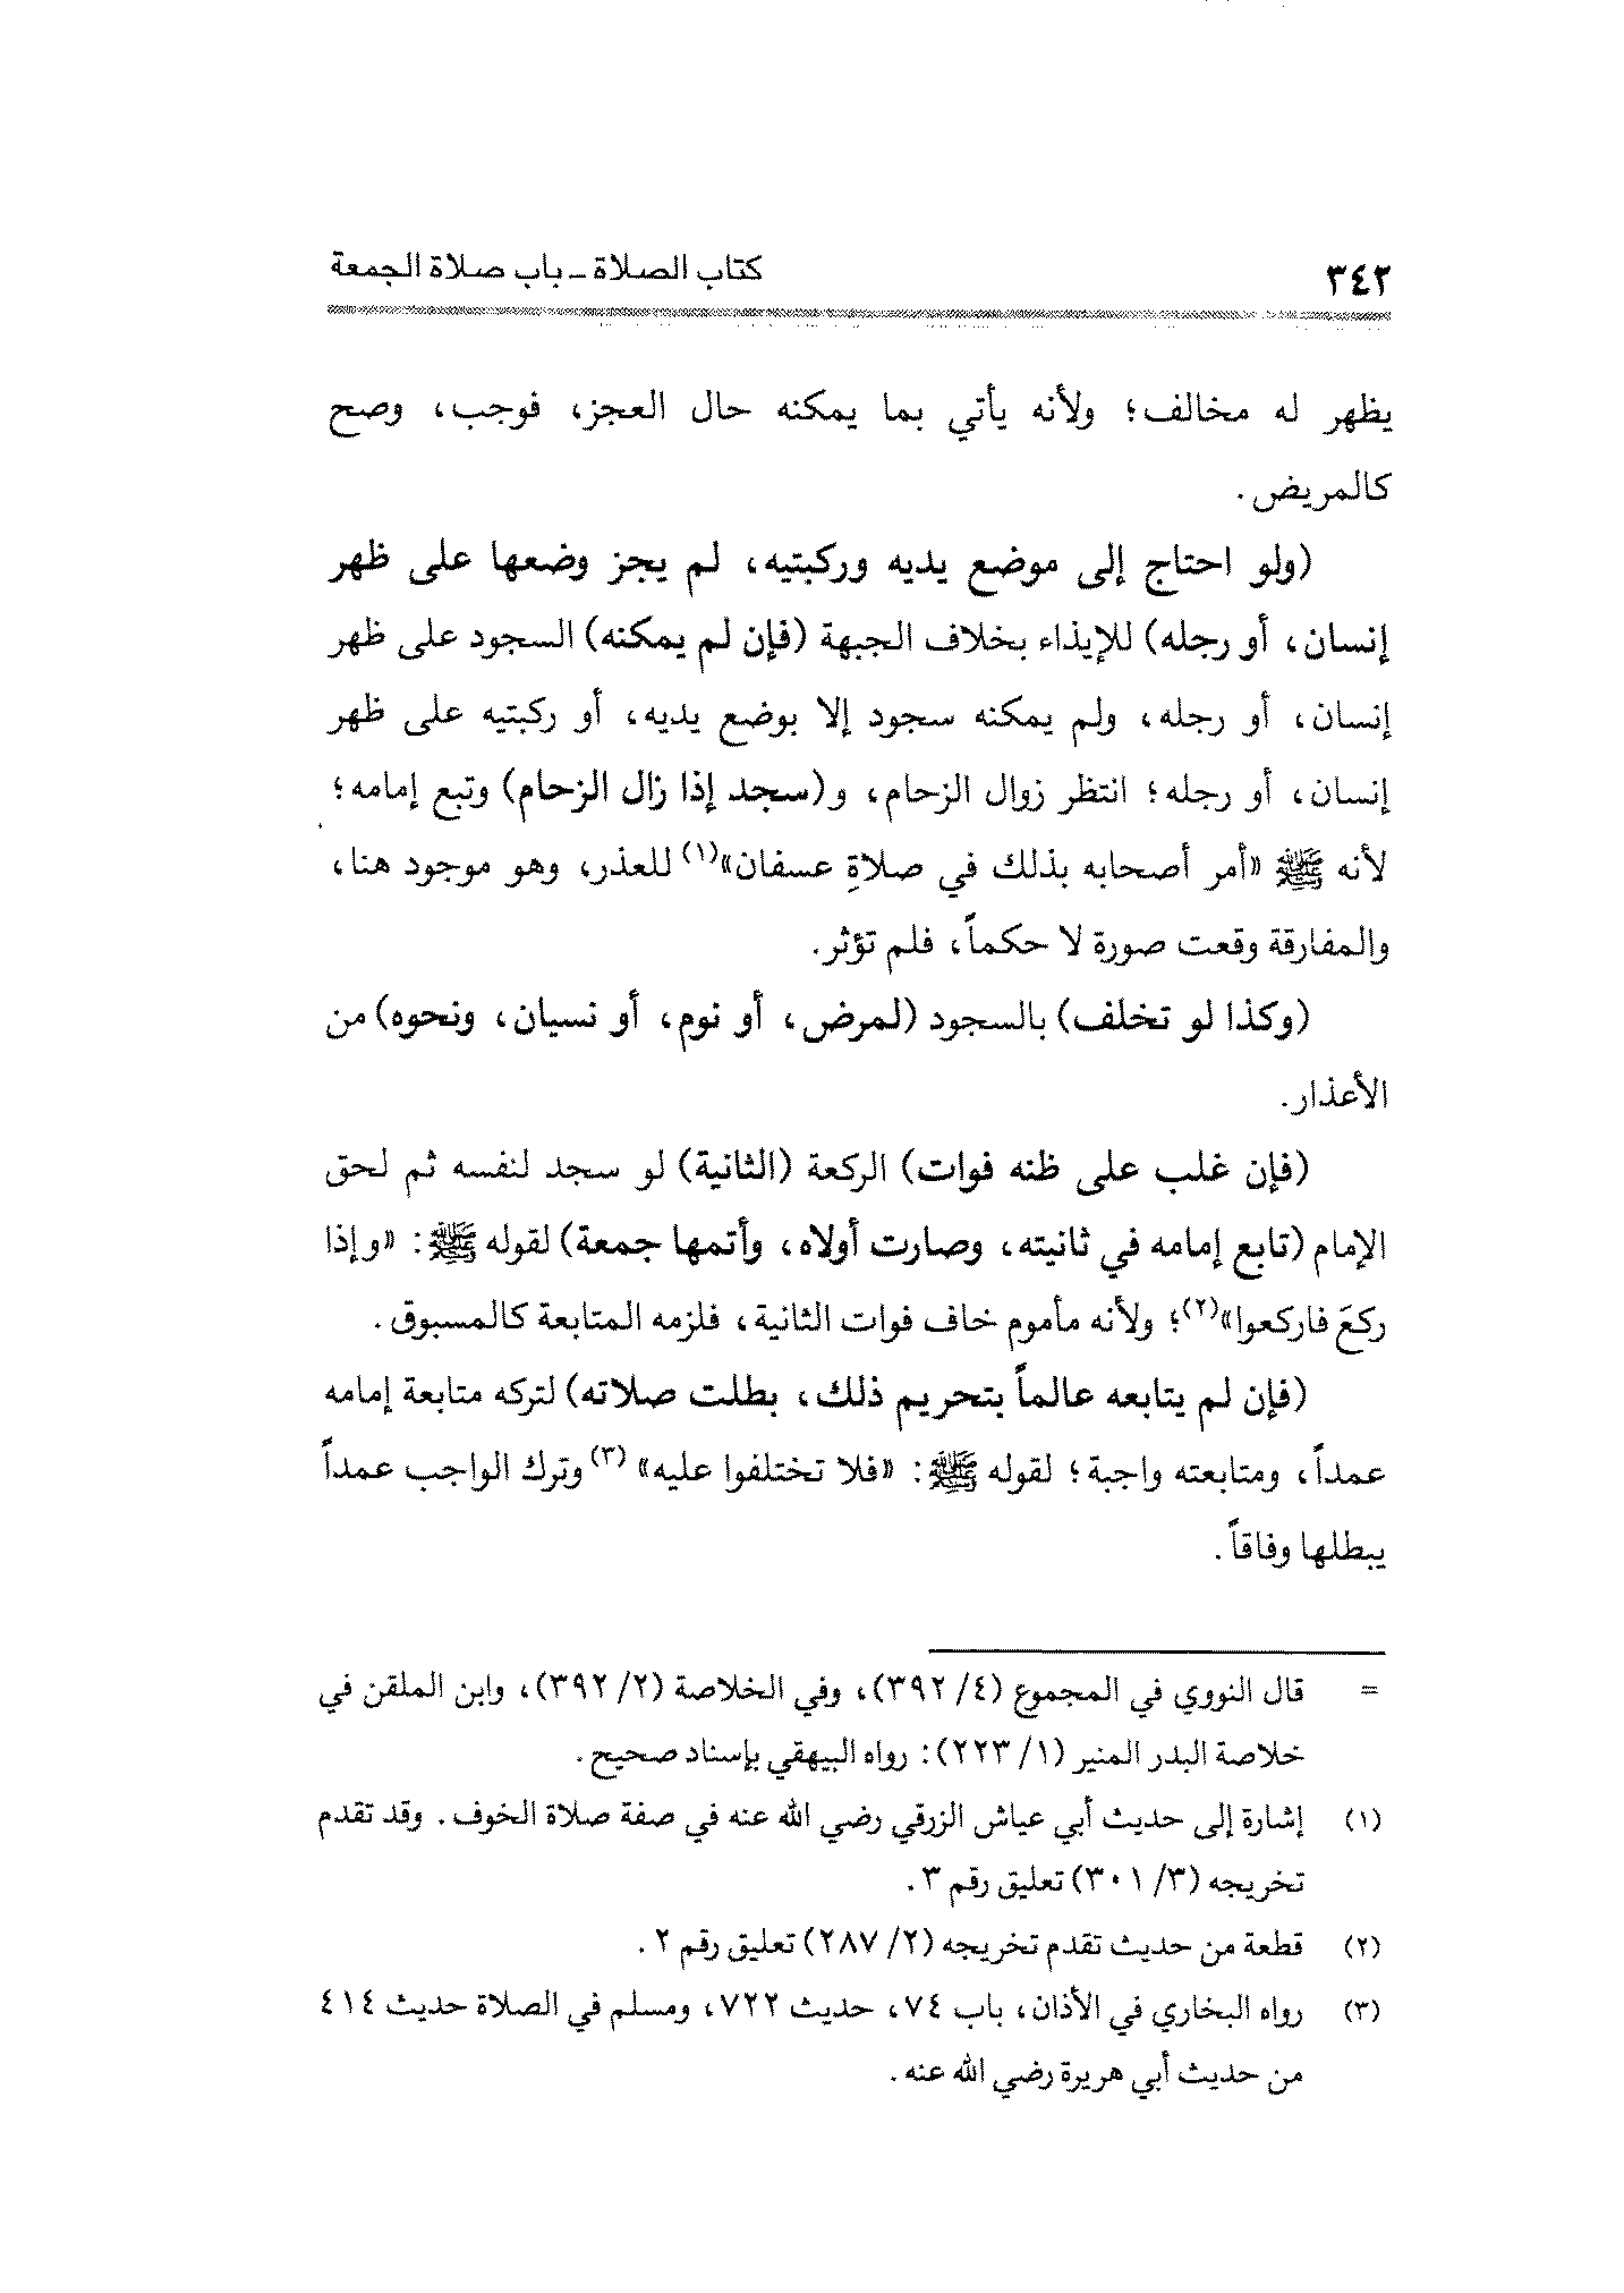 ٣٤٢ كتاب الصلاة ـ باب صلاة الجمعة
يظهر له مخالف؛ ولأنه يأتي بما يمكنه حال العجز، فوجب، وصح
كالمريض.
(ولو احتاج إلى موضع يديه وركبتيه، لم يجز وضعها على ظهر
إنسان، أو رجله) للإيذاء بخلاف الجبهة (فإن لم يمكنه) السجود على ظهر
إنسان، أو رجله، ولم يمكنه سجود إلا بوضع يديه، أو ركبتيه على ظهر
إنسان، أو رجله؛ انتظر زوال الزحام، و(سجد إذا زال الزحام) وتبع إمامه؛
لأنه ﷺ «أمر أصحابه بذلك في صلاةِ عسفان»(١) للعذر، وهو موجود هنا،
والمفارقة وقعت صورة لا حكماً، فلم تؤثر.
(وكذا لو تخلف) بالسجود (لمرض، أو نوم، أو نسيان، ونحوه) من
الأعذار.
(فإن غلب على ظنه فوات) الركعة (الثانية) لو سجد لنفسه ثم لحق
الإمام (تابع إمامه في ثانيته، وصارت أولاه، وأتمها جمعة) لقوله ﷺ: «وإذا
ركعَ فاركعوا»(٢)؛ ولأنه مأموم خاف فوات الثانية، فلزمه المتابعة كالمسبوق.
(فإن لم يتابعه عالماً بتحريم ذلك، بطلت صلاته) لتركه متابعة إمامه
عمداً، ومتابعته واجبة؛ لقوله ﷺ: «فلا تختلفوا عليه»(٣) وترك الواجب عمداً
يبطلها وفاقاً.
= قال النووي في المجموع (٤/ ٣٩٢)، وفي الخلاصة (٢/ ٣٩٢)، وابن الملقن في
خلاصة البدر المنير (١/ ٢٢٣): رواه البيهقي بإسناد صحيح.
(١) إشارة إلى حديث أبي عياش الزرقي رضي الله عنه في صفة صلاة الخوف. وقد تقدم
تخريجه (٣/ ٣٠١) تعليق رقم ٣.
(٢) قطعة من حديث تقدم تخريجه (٢/ ٢٨٧) تعليق رقم ٢.
(٣) رواه البخاري في الأذان، باب ٧٤، حديث ٧٢٢، ومسلم في الصلاة حديث ٤١٤
من حديث أبي هريرة رضي الله عنه.